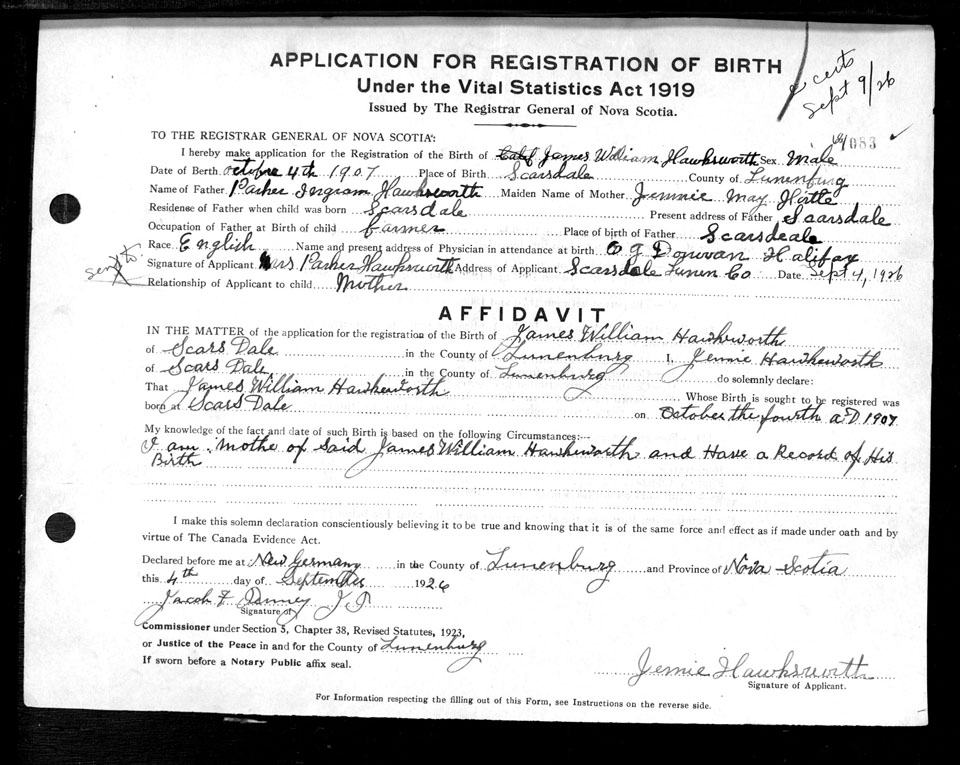 APPLICATION FOR REGISTRATION OF BIRTH
Under the Vital Statistics Act 1919
Issued by The Registrar General of Nova Scotia.
2 certs
Sept 9/26
083
TO THE REGISTRAR GENERAL OF NOVA SCOTIA:
I hereby make application for the Registration of the Birth of James William Hawksworth Sex Male
Date of Birth October 4th 1907 Place of Birth Scarsdale County of Lunenburg
Name of Father Parker Ingram Hawksworth Maiden Name of Mother Jennie May Hirtle
Residense of Father when child was born Scarsdale Present address of Father Scarsdale
Occupation of Father at Birth of child farmer Place of birth of Father Scarsdeale
Race English Name and present address of Physician in attendance at birth O J Donovan Halifax
send to
Signature of Applicant Mrs Parker Hawksworth Address of Applicant Scarsdale Lunen Co Date Sept 4, 1926
Relationship of Applicant to child Mother
AFFIDAVIT
IN THE MATTER of the application for the registration of the Birth of James William Hawkeworth
of Scars Dale in the County of Lunenburg I, Jennie Hawkeworth
of Scars Dale, in the County of Lunenburg do solemnly declare:
That James William Hawkeworth Whose Birth is sought to be registered was
born at Scars Dale on October the fourth A.D. 1907
My knowledge of the fact and date of such Birth is based on the following Circumstances:--
I am mothe of Said James William Hawkeworth and Have a Record of His
Birth
I make this solemn declaration conscientiously believing it to be true and knowing that it is of the same force and effect as if made under oath and by
virtue of The Canada Evidence Act.
Declared before me at New Germany in the County of Lunenburg and Province of Nova Scotia
this 4th day of September 1926
Jacob F J P
Signature of
Commissioner under Section 5, Chapter 38, Revised Statutes, 1923,
or Justice of the Peace in and for the County of Lunenburg
If sworn before a Notary Public affix seal.
Jennie Hawksworth
Signature of Applicant.
For Information respecting the filling out of this Form, see Instructions on the reverse side.